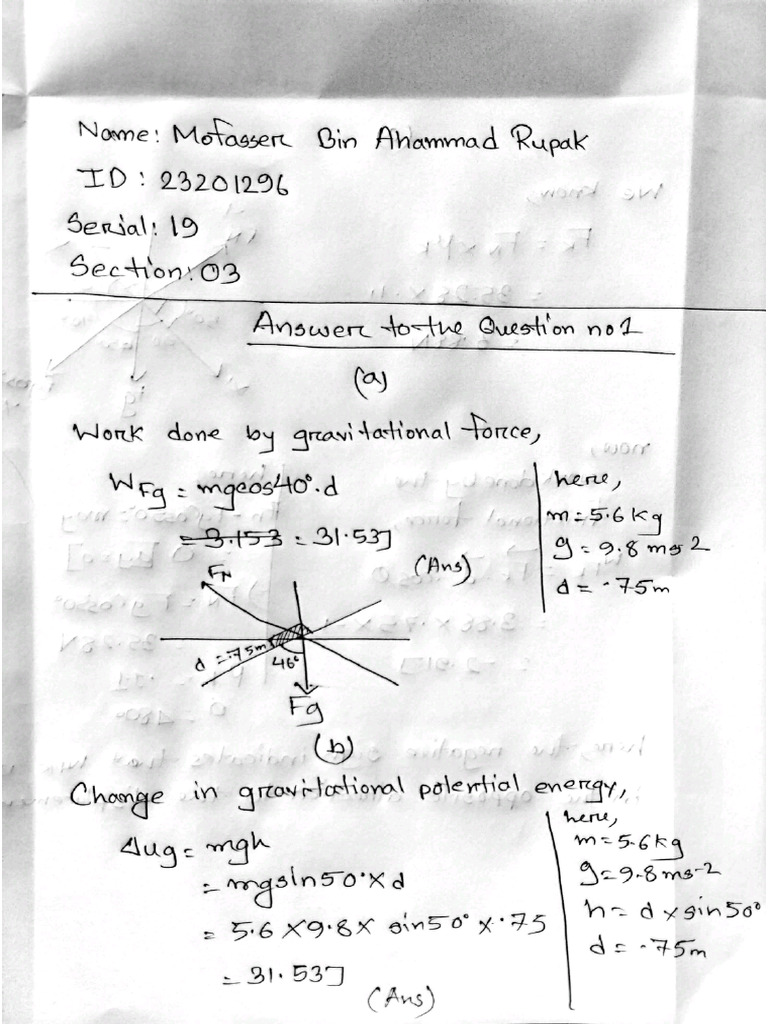 Name: Mofasser Bin Ahammad Rupak
ID: 23201296
Serial: 19
Section: 03
Answer to the Question no 1
(a)
Work done by gravitational force,
WFg = mgcos40°.d
= 3.153 = 31.53J
(Ans)
here,
m = 5.6 kg
g = 9.8 ms-2
d = .75m
FN
d = .75m
46°
Fg
(b)
Change in gravitational potential energy,
Δug = mgh
= mgsin50°×d
= 5.6 × 9.8 × sin50° × .75
= 31.53J
(Ans)
here,
m = 5.6 kg
g = 9.8 ms-2
h = d × sin50°
d = .75m